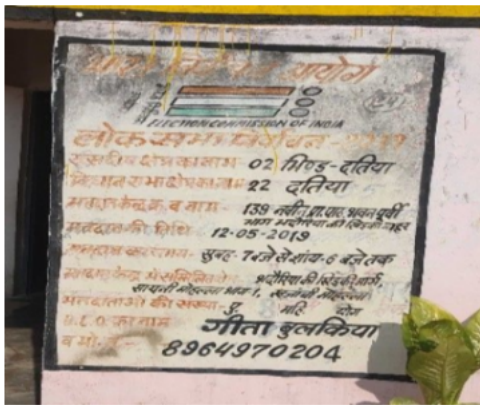 भारत निर्वाचन आयोग
ELECTION COMMISSION OF INDIA
लोक सभा निर्वाचन - 2019
संसदीय क्षेत्र का नाम - 02 भिण्ड - दतिया
विधान सभा क्षेत्र का नाम 22 दतिया
मतदान केन्द्र क्र. व नाम - 139 नवीन प्रा. पाठ. भवन पूर्वी
भाग भदौरिया की खिड़की
मतदान की तिथि 12-05-2019
सुबह - 7 बजे से शांय - 6 बजे तक
भदौरिया की खिड़की मार्ग,
मतदाताओं की संख्या - पु. महि. योग
B.L.O का नाम गीता बुलकिया
व मो. नं. -
8964970204